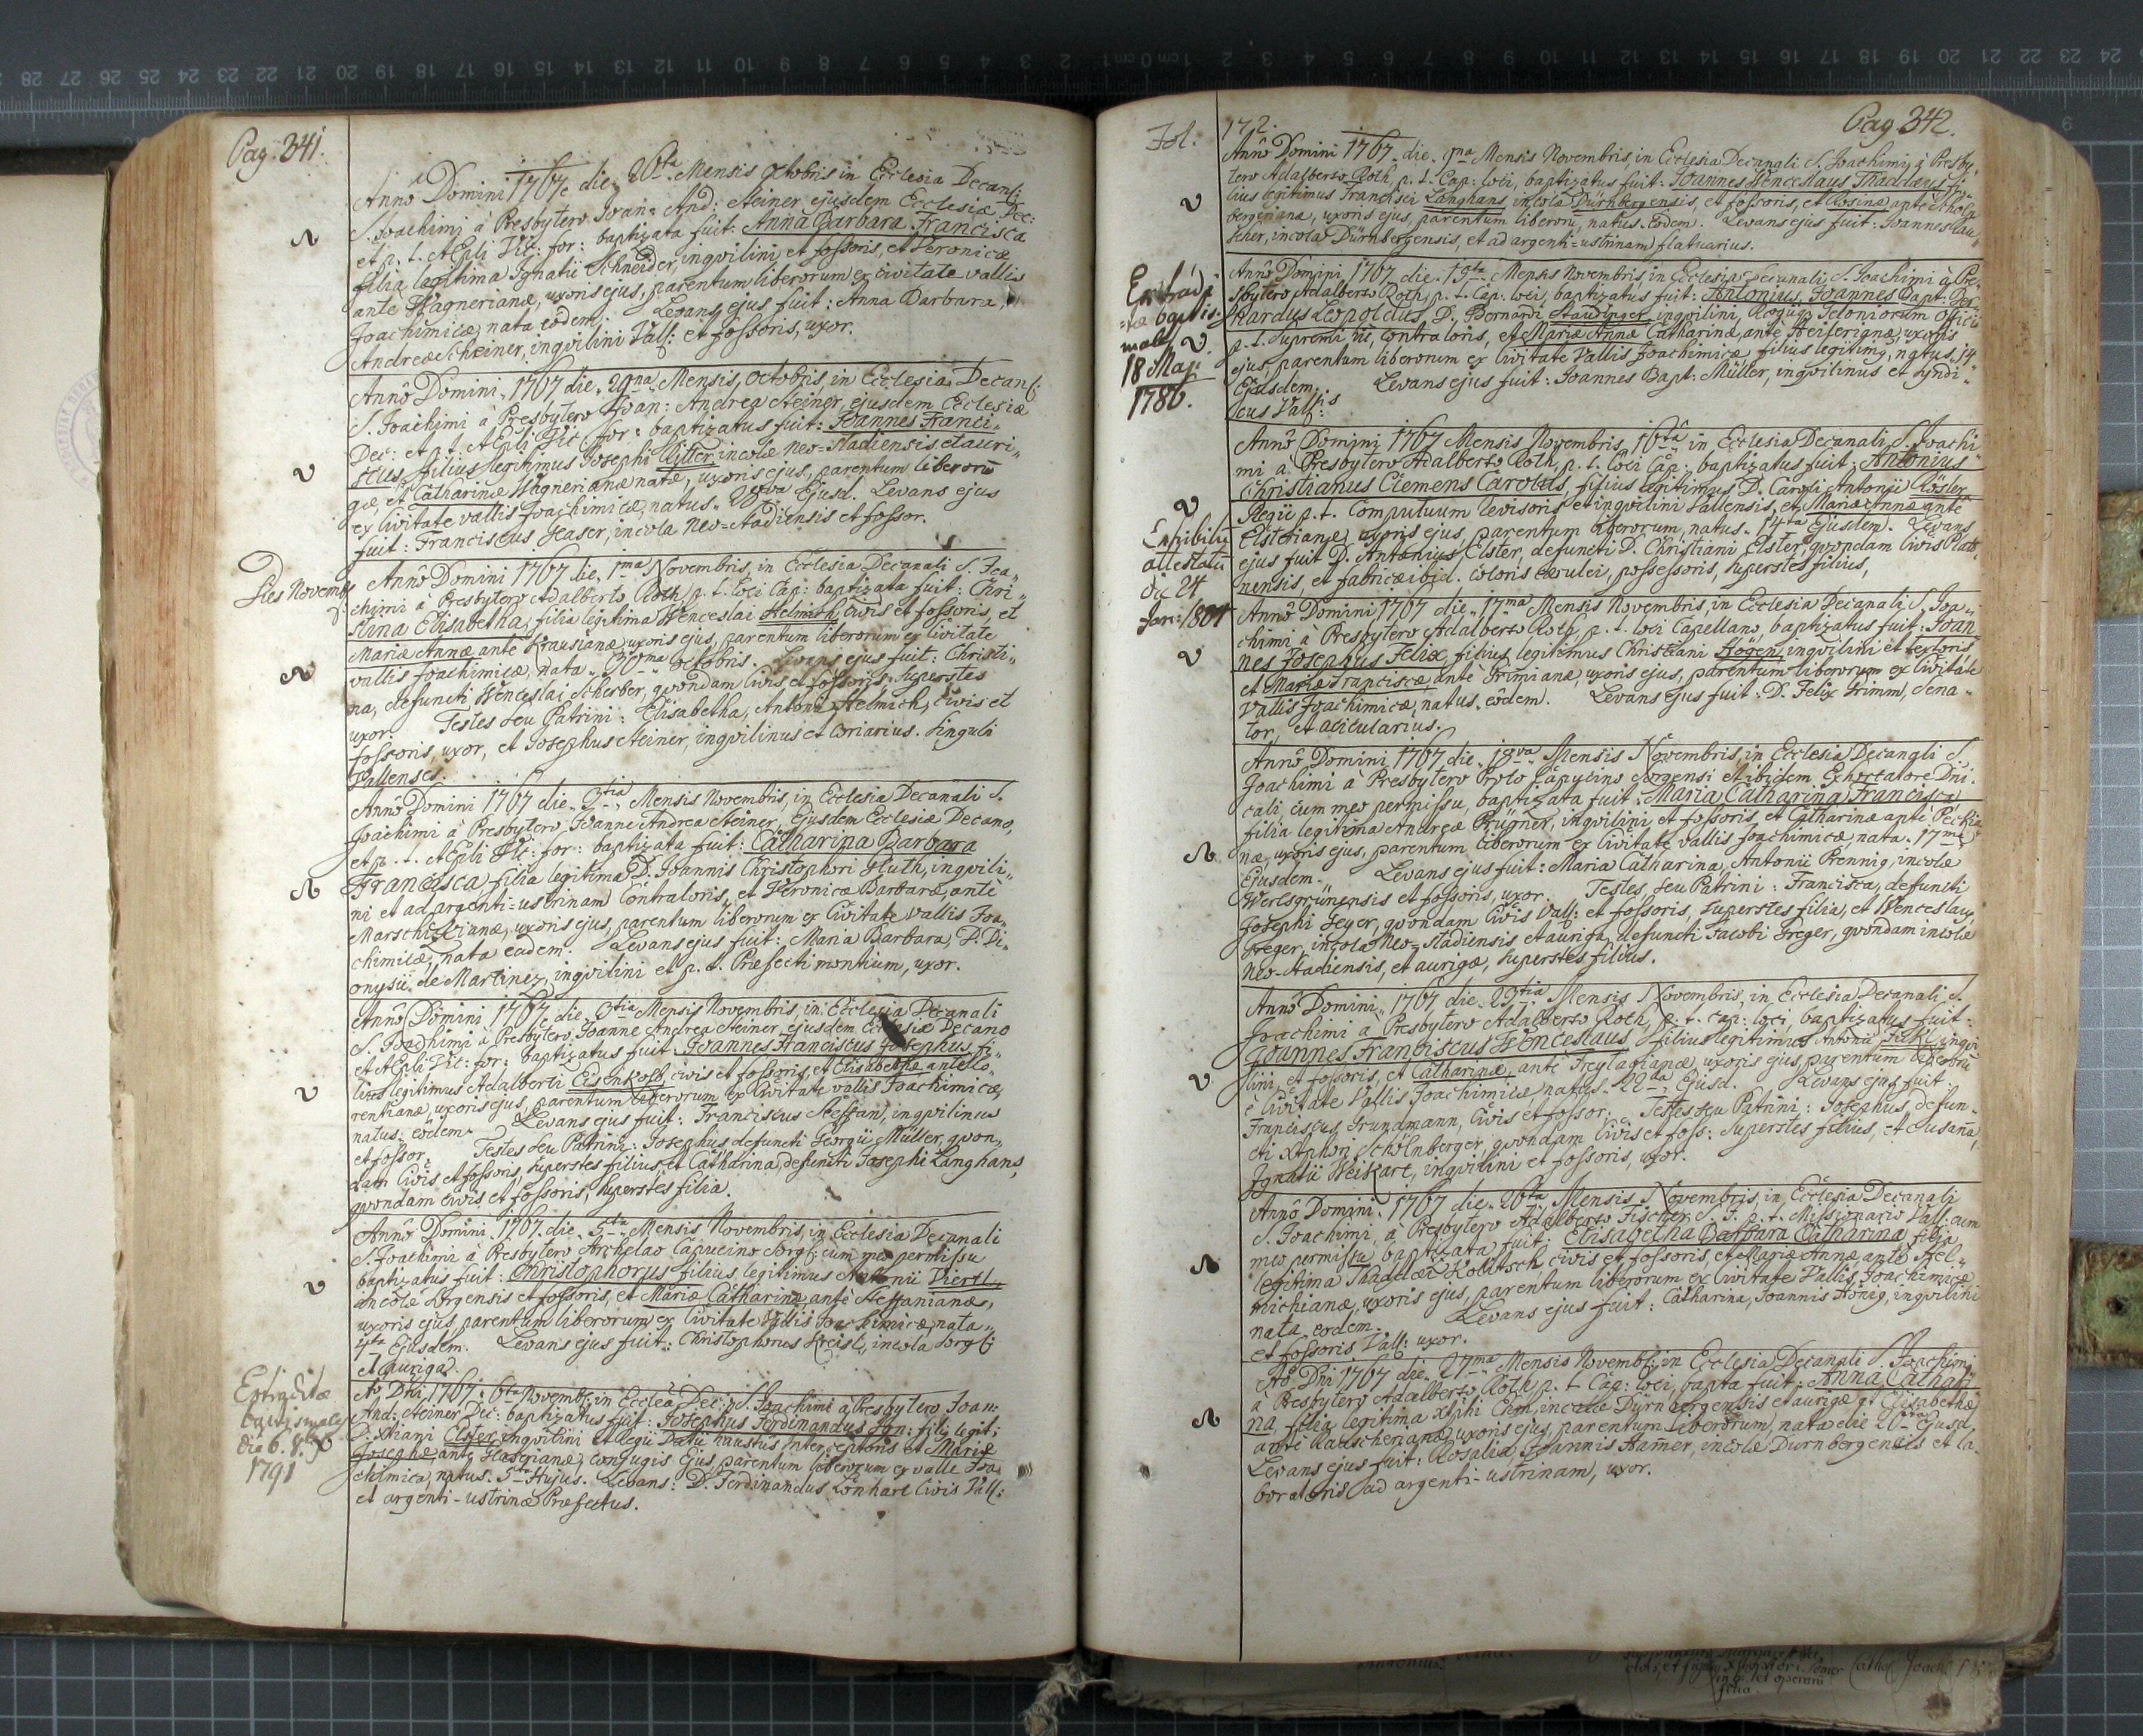 Pag. 341.
Anno Domini 1767 die 26ta Mensis Octobris in Ecclesia Decanli
S. Joachimi à Presbytero Joan: And: Steiner ejusdem Ecclesiæ Dec:
et p. t. AEpli Vic: for: baptizata fuit: Anna Barbara Francisca
filia legitima Ignatii Schneider, inqvilini et fossoris, et Veronicæ
ante Wagnerianæ, uxoris ejus, parentum liberorum ex civitate vallis
Joachimicæ, nata eôdem. Levans ejus fuit: Anna Barbara,
Andreæ Schreiner, inqvilini Vall: et fossoris, uxor.
Annô Domini 1767 die 29na Mensis Octobris, in Ecclesia Decanl:
S. Joachimi à Presbytero Joan: Andrea Steiner, ejusdem Ecclesiæ
Dec: et p. t. AEpli Vic: for: baptizatus fuit: Joannes Franci„
scus, filius legitimus Josephi Ritter, incolæ Neo=Stadiensis et auri„
gæ, et Catharinæ Wagnerianæ natæ, uxoris ejus, parentum liberorū
ex Civitate vallis Joachimicæ, natus 28va Ejusd. Levans ejus
fuit: Franciscus Heaser, incola Neo=Stadiensis et fossor.
Dies Novemb
Annô Domini 1767 die 1ma Novembris, in Ecclesia Decanali S. Joa„
chimi à Presbytero Adalberto Roth p. t. loci Cap: baptizata fuit: Chri„
stina Elisabetha, filia legitima Wenceslai Helmich, civis et fossoris, et
Mariæ Annæ ante Krausianæ, uxoris ejus, parentum liberorum ex Civitate
vallis Joachimicæ, nata 30ma Octobris. Levans ejus fuit: Christi„
na, defuncti Wenceslai Scherber, qvondam civis et fossoris superstes
uxor. Testes seu Patrini: Elisabetha, Antonii Helmich, civis et
fossoris, uxor, et Josephus Steiner, inqvilinus et Coriarius. singuli
Vallenses.
Annô Domini 1767 die 3tia Mensis Novembris, in Ecclesia Decanali S.
Joachimi à Presbytero Joanne Andrea Steiner, Ejusdem Ecclesiæ Decano,
et p. t. AEpli Vic: for: baptizata fuit: Catharina Barbara
Francisca, filia legitima D. Joannis Christophori Huth, inqvili„
ni et ad argenti=ustrinam Contraloris, et Veronicæ Barbaræ, ante
uxoris ejus, parentum liberorum ex Civitate Vallis Joa„
chimicæ, nata eadem. Levans ejus fuit: Maria Barbara, P. Di„
onysii de Martinez, inqvilini et p. t. Præfecti montium, uxor.
Annô Domini 1767 die 3tia Mensis Novembris, in Ecclesia Decanali
S. Joachimi à Presbytero Joanne Andrea Steiner, ejusdem Ecclesiæ Decano
et AEpli Vic: for: baptizatus fuit: Joannes Franciscus Josephus, fi„
lius legitimus Adalberti Eisenkolb, civis et fossoris, et Elisabethæ ante Lo„
rentianæ, uxoris ejus, parentum liberorum ex Civitate vallis Joachimicæ,
natus eôdem. Levans ejus fuit: Franciscus Steffan, inqvilinus
et fossor. Testes seu Patrini: Josephus, defuncti Georgii Müller, qvon„
dam Civis et fossoris, superstes filius, et Catharina, defuncti Josephi Langhans,
qvondam civis et fossoris, superstes filia.
Annô Domini 1767 die 5ta Mensis Novembris, in Ecclesia Decanali
S. Joachimi à Presbytero Archelao Capucino Sorgl: cum meo permissu
baptizatus fuit: Christophorus filius legitimus Antonii Viertl,
incolæ Sorgensis et fossoris, et Mariæ Catharinæ antè Steffanianæ,
uxoris ejus, parentum liberorum ex Civitate Vallis Joachimicæ, nata„
4ta Ejusdem. Levans ejus fuit: Christophorus Kreisl, incola Sorgl:
et auriga.
Extraditæ
baptismales
die 6. 8.
1791
Aô Dni 1767 6ta Novembr: in Ecclea Dec: S. Joachimi à Presbytero Joan:
And: Steiner Dec: baptizatus fuit: Josephus Ferdinandus Ign: filis legit:
D. Xtiani Elster, inqvilini et Regii Salii haustus Interceptoris et Mariæ
Josephæ ante Hasserianæ, conjugis Ejus, parentum liberorum ex valle Joa„
chimica, natus 5ta Hujus. Levans: D. Ferdinandus Lönhart Civis Vall:
et argenti-ustrinæ Præfectus.
Fol. 172.
Pag. 342.
Annô Domini 1767 die 9na Mensis Novembris, in Ecclesia Decanali S. Joachimi, à Presby„
tero Adalberto Roth p. t. Cap: loci, baptizatus fuit: Joannes Wenceslaus Thadæus, fi„
lius legitimus Francisci Langhans, incolæ Dürnbergensis, et fossoris, et Rosinæ ante Schön„
bergerianæ, uxoris ejus, parentum liberorū, natus eôdem. Levans ejus fuit: Joannes Rau„
scher, incola Dürnbergensis, et ad argenti=ustrinam flatuarius.
Extradi
tæ baptis
males
18 Maji
1786.
Annô Domini 1767 die 15ta Mensis Novembris, in Ecclesia Decanali S. Joachimi à Pre„
sbytero Adalberto Roth, p. t. Cap: loci, baptizatus fuit: Antonius Joannes Bapt: Ber„
hardus Leopoldus, D. Bernardi Staudinger, inqvilini, Regiiq; Teloniorum Officii
p. t. Supremi hic Contraloris, et Mariæ Annæ Catharinæ, ante Heiserianæ, uxoris
ejus, parentum liberorum ex Civitate Vallis Joachimicæ, filius legitimus, natus 14
Ejusdem. Levans ejus fuit: Joannes Bapt: Müller, inqvilinus et Syndi„
cus Vall:
Exhibita
attestata
die 24
Janr: 1801
Annô Domini 1767 Mensis Novembris 16ta in Ecclesia Decanali S. Joachi„
mi à Presbytero Adalberto Roth, p. t. loci Cap: baptizatus fuit: Antonius
Christianus Clemens Carolus, filius legitimus D. Caroli Antonii Rösler
Regii p. t. Computuum Revisoris et inqvilini Vallensis, et Mariæ Annæ ante
Elsterianæ, uxoris ejus, parentum liberorum, natus 14ta Ejusdem. Levans
ejus fuit D. Antonius Elster, defuncti D. Christiani Elster, qvondam Civis Platt„
nensis, et fabricæ ibid. coloris cœrulei, possessoris, superstes filius,
Annô Domini 1767 die 17ma Mensis Novembris, in Ecclesia Decanali S. Joa„
chimi à Presbytero Adalberto Roth, p. t. loci Capellano, baptizatus fuit: Joan„
nes Josephus Felix, filius legitimus Christiani Högen, inqvilini et textoris
et Mariæ Franciscæ, antè Grimianæ, uxoris ejus, parentum liberorum ex Civitate
Vallis Joachimicæ, natus eôdem. Levans ejus fuit: D. Felix Grimm, Sena„
tor, et acicularius.
Annô Domini 1767 die 18va Mensis Novembris, in Ecclesia Decanali S.
Joachimi à Presbytero Proto Capucino Sorgensi et ibidem Exhortatore Dni„
cali, cum meo permissu, baptizata fuit: Maria Catharina Francisca
filia legitima Andreæ Prügner, inqvilini et fossoris, et Catharinæ ante Pechia„
næ, uxoris ejus, parentum liberorum ex Civitate Vallis Joachimicæ, nata 17ma
Ejusdem. Levans ejus fuit: Maria Catharina, Antonii Prennig, incolæ
Werlsgrünensis et fossoris, uxor. Testes seu Patrini: Francisca, defuncti
Josephi Geyer, qvondam Civis Vall: et fossoris, superstes filia, et Wenceslaus
Greger, incola Neo=Stadiensis et auriga, defuncti Jacobi Greger, qvondam incolæ
Neo-Stadiensis, et aurigæ, superstes filius.
Annô Domini 1767 die 23tia Mensis Novembris, in Ecclesia Decanali S.
Joachimi à Presbytero Adalberto Roth, p. t. cap: loci, baptizatus fuit:
Joannes Franciscus Wenceslaus filius legitimus Antonii inqvi„
lini, et fossoris, et Catharinæ, antè Freytagianæ, uxoris ejus, parentum liberorū
è Civitate Vallis Joachimicæ, natus 22da Ejusd. Levans ejus fuit:
Franciscus Grundmann, Civis et fossor. Testes seu Patrini: Josephus, defun„
cti Xtphori Schölnberger, qvondam Civis et foss: superstes filius, et Susana,
Ignatii Weikart, inqvilini et fossoris, uxor.
Annô Domini 1767 die 26ta Mensis Novembris, in Ecclesia Decanali
S. Joachimi, à Presbytero Adalberto Fischer S. J. p. t. Missionario Vall: cum
meo permissu, baptizata fuit: Elisabetha Barbara Catharina, filia
legitima Thaddæi Kolitsch, civis et fossoris, et Mariæ Annæ, ante Hel„
michianæ, uxoris ejus, parentum liberorum ex Civitate Vallis Joachimicæ
nata eodem. Levans ejus fuit: Catharina, Joannis Honig, inqvilini
et fossoris Vall: uxor.
Aô Dni 1767 die 27ma Mensis Novembr: in Ecclesia Decanali S. Joachimi
à Presbytero Adalberto Roth, p. t. Cap: loci, bapta fuit: Anna Cathari„
na, filia legitima Xtphi incolæ Dürnbergensis et aurigæ et Elisabethæ
antè Rauscherianæ, uxoris ejus, parentum liberorum, nata die 26ta Ejusd.
Levans ejus fuit: Rosalia, Joannis Hamer, incolæ Dürnbergensis et la„
boratoris ad argenti-ustrinam, uxor.